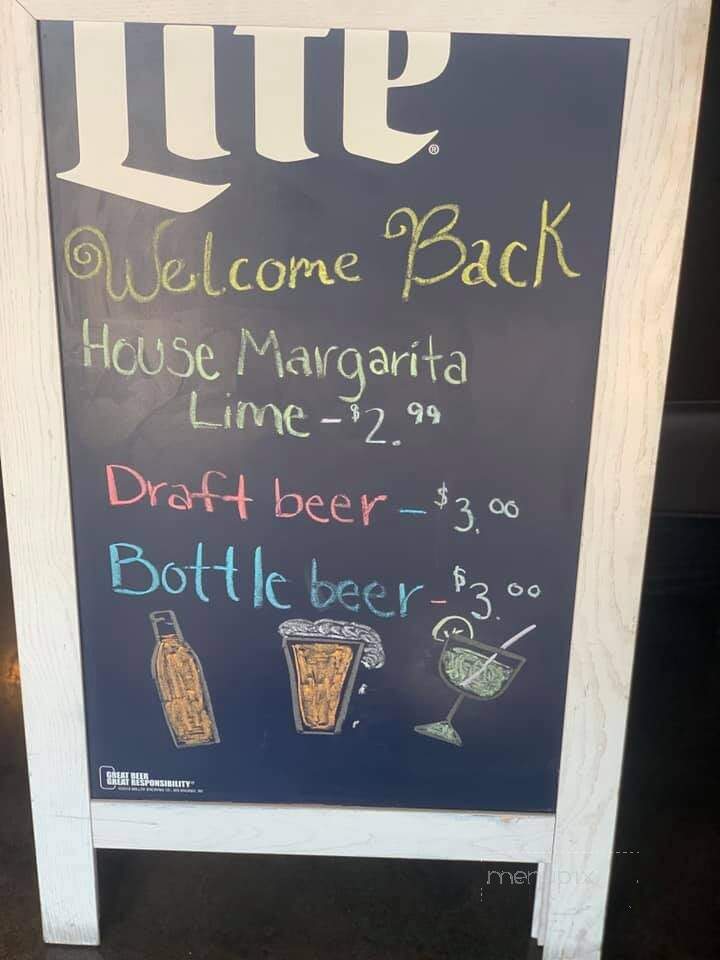 Lite®
Welcome Back
House Margarita
Lime - $2.99
Draft beer - $3.00
Bottle beer - $3.00
GREAT BEER
GREAT RESPONSIBILITY®